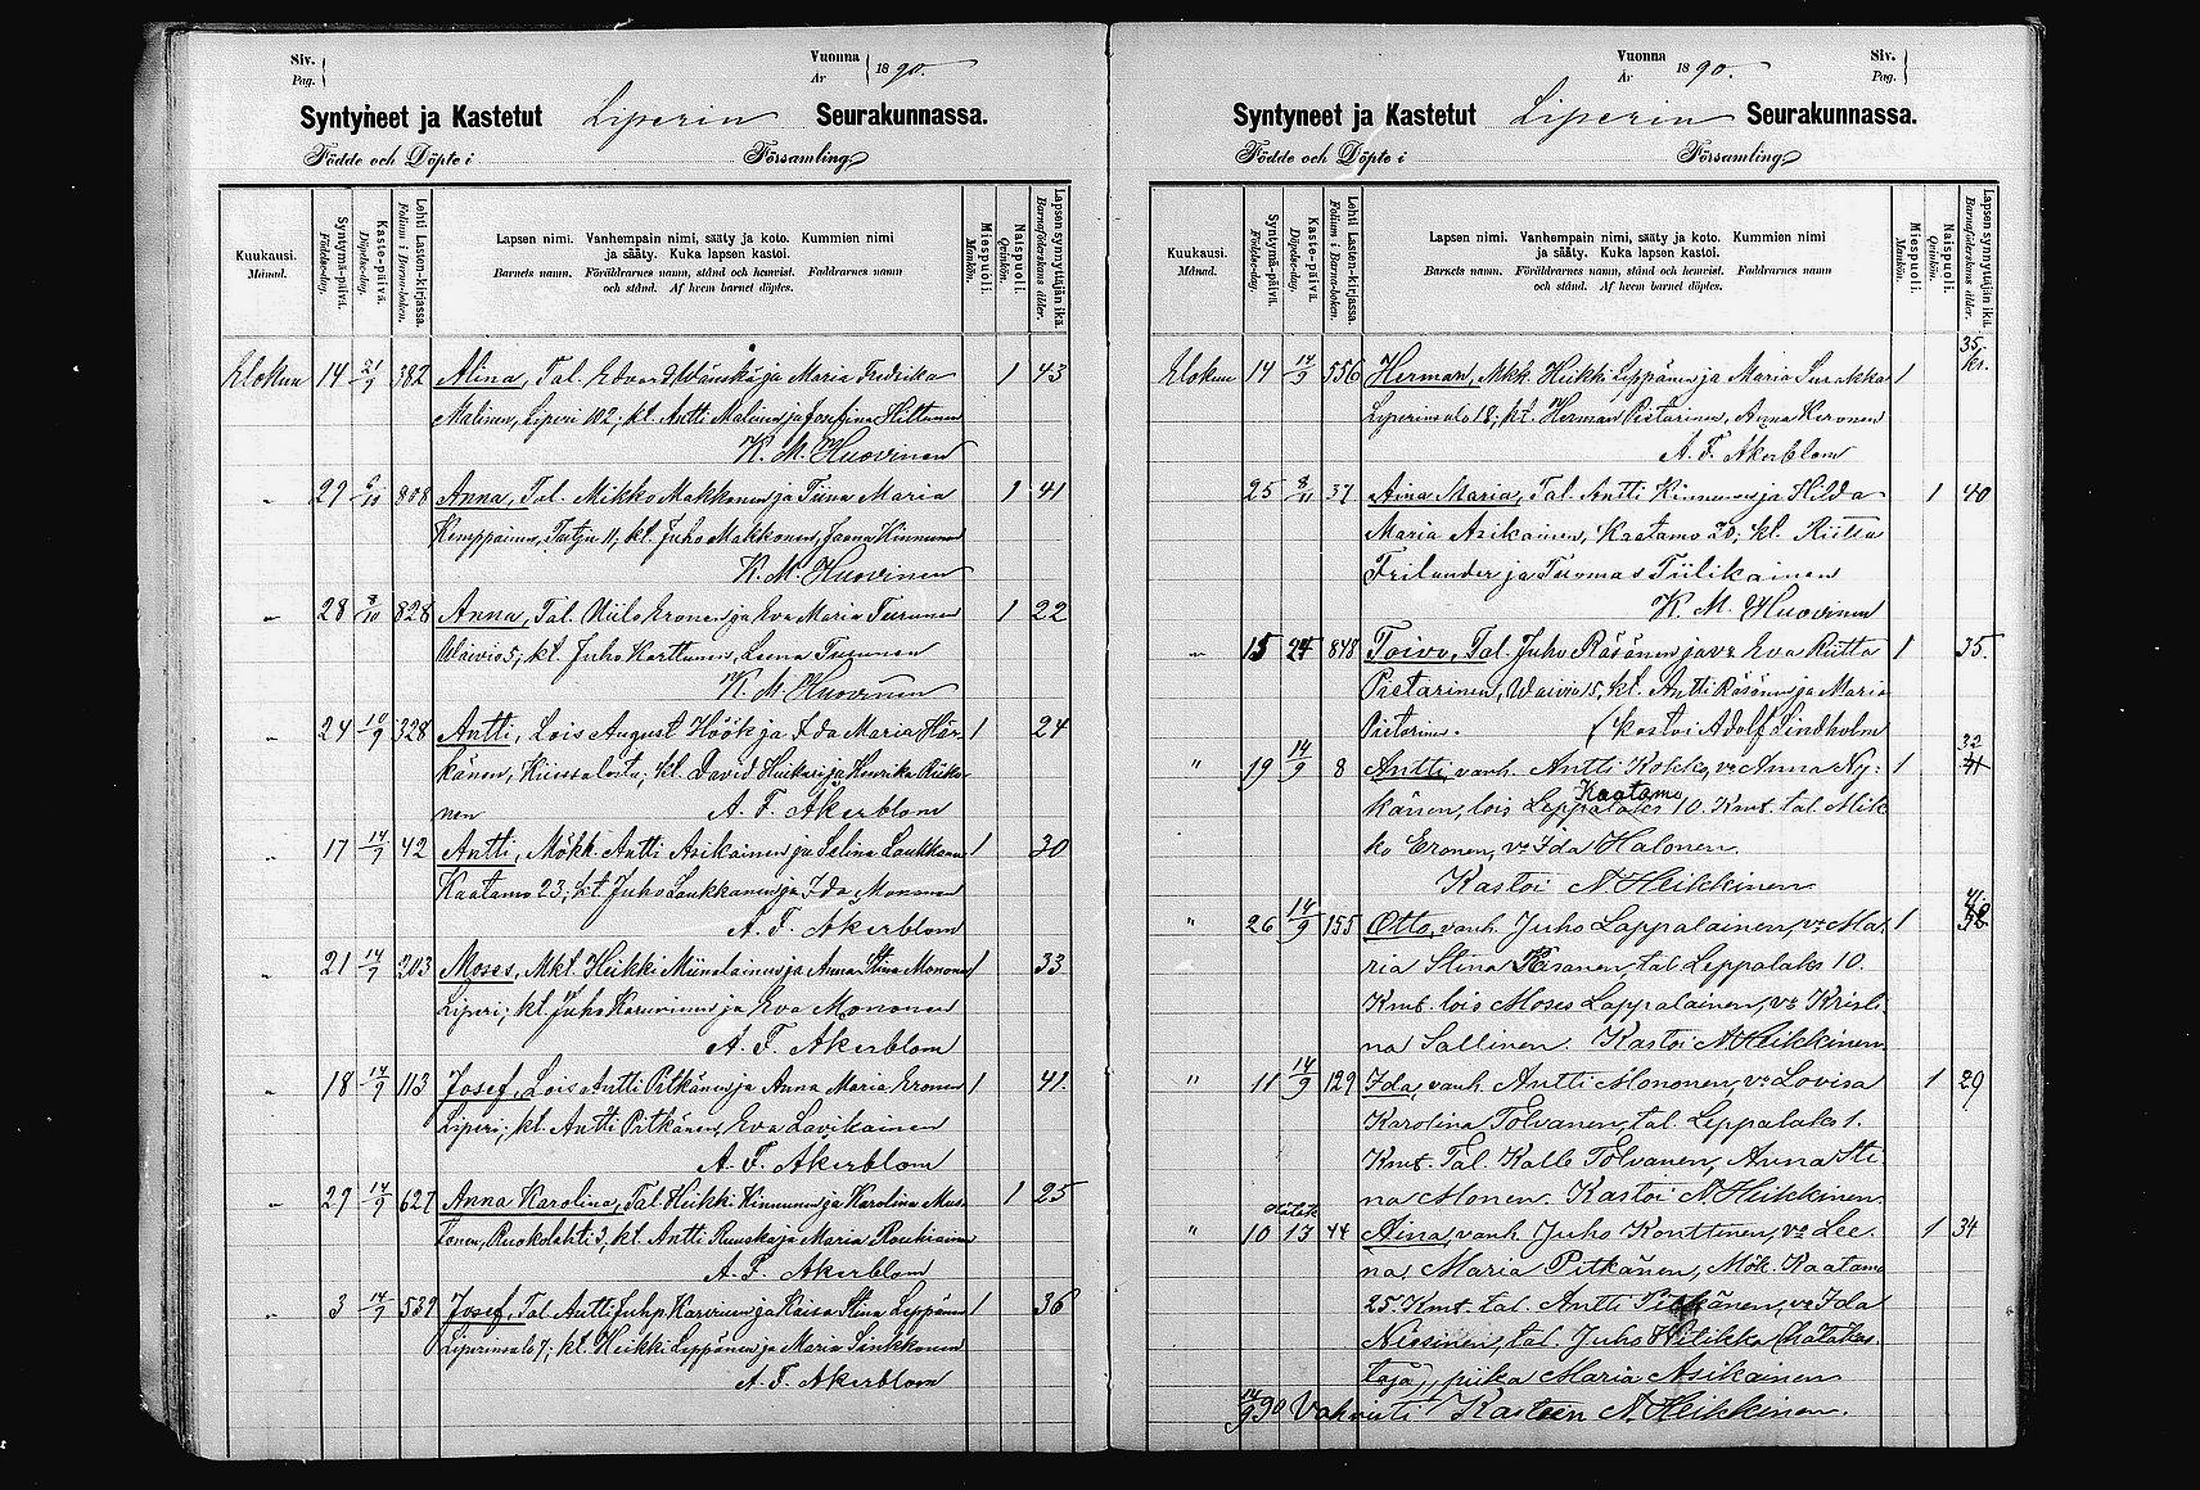 Siv.
Pag.
Vuonna
År
1890.
Syntyneet ja Kastetut Liperin Seurakunnassa.
Födde och Döpte i Församling
Kuukausi.
Månad.
Syntymä-päivä.
Födelse-dag.
Kaste-päivä.
Döpelse-dag.
Lehti Lasten-kirjassa.
Folium i Barna-boken.
Lapsen nimi. Vanhempain nimi, sääty ja koto. Kummien nimi
ja sääty. Kuka lapsen kastoi.
Barnets namn. Föräldrarnes namn, stånd och hemvist. Faddrarnes namn
och stånd. Af hvem barnet döptes.
Miespuoli.
Mankön.
Naispuoli.
Qvinkön.
Lapsensynnyttäjän ikä.
Barnaföderskans ålder.
Elokuu 14 21/9 382 Alina, Tal. Edvard Wänskä ja Maria Fredrika 1 43
Malinen, Liperi 102; kt. Antti Malinen ja Josefina Hiltunen
K. M. Huovinen
" 29 /10 808 Anna, Tal. Mikko Makkonen ja Tiina Maria 1 41
Kemppainen, 11, kt. Juho Makkonen, Jaana Kinnunen
K. M. Huovinen
" 28 8/10 828 Anna, Tal. Niilo Eronen ja Eva Maria Turunen 1 22
Wäiviö 5; kt. Juho Karttunen, Leena Turunen
K. M. Huovinen
" 24 10/9 328 Antti, Lois August Höök ja Ida Maria Här- 1 24
känen, kt. David ja Henrika Riiko-
nen A. F. Akerblom
" 17 14/9 42 Antti, Mökk. Antti Asikainen ja Selina Laukkanen 1 30
Kaatamo 23; kt. Juho Laukkanen ja Ida Mononen
A. F. Akerblom
" 21 14/9 203 Moses, Mkl. Heikki Miinalainen ja Anna Stina Mononen 1 33
Liperi; kt. Juho Karvinen ja Eva Mononen
A. F. Akerblom
" 18 14/9 113 Josef, Lois Antti Pitkänen ja Anna Maria Eronen 1 41.
Liperi; kt. Antti Pitkänen, Eva Lavikainen
A. F. Akerblom
" 29 14/9 627 Anna Karolina, Tal. Heikki Kinnunen ja Karolina Mus- 1 25
tonen, Ruokolahti 3, kt. Antti Ruuska ja Maria Rouhiainen
A. F. Akerblom
" 3 14/9 539 Josef, Tal. Antti Juhp. Karvinen ja Kaisa Stina Leppänen 1 36
Liperinsalo 7; kt. Heikki Leppänen ja Maria Sinkkonen
A. F. Akerblom
Vuonna
År
1890.
Siv.
Pag.
Syntyneet ja Kastetut Liperin Seurakunnassa.
Födde och Döpte i Församling
Kuukausi.
Månad.
Syntymä-päivä.
Födelse-dag.
Kaste-päivä.
Döpelse-dag.
Lehti Lasten-kirjassa.
Folium i Barna-boken.
Lapsen nimi. Vanhempain nimi, sääty ja koto. Kummien nimi
ja sääty. Kuka lapsen kastoi.
Barnets namn. Föräldrarnes namn, stånd och hemvist. Faddrarnes namn
och stånd. Af hvem barnet döptes.
Miespuoli.
Mankön.
Naispuoli.
Qvinkön.
Lapsensynnyttäjän ikä.
Barnaföderskans ålder.
Elokuu 14 14/9 556 Herman, Mkk. Heikki Leppänen ja Maria Surakka 1 35
Liperinsalo 18; kt. Herman Pietarinen, Anna Keronen
A. F. Akerblom
25 8/11 37 Aina Maria, Tal. Antti Kinnunen ja Hilda 1 40
Maria Asikainen, Kaatamo 20; kt. Riitta
Frilander ja Tuomas Tiilikainen
K. M. Huovinen
" 15 24 848 Toivo, Tal. Juho Räsänen ja vo Eva Riitta 1 35.
Pietarinen, Waiviö 5, kt. Antti Räsänen ja Maria
Pietarinen. (Kastoi Adolf Lindholm
" 19 14/9 8 Antti, vanh. Antti Kokko, vo Anna Ny- 1 32
känen, lois Leppälaks Kaatamo 10. Kmt. tal. Mik
ko Eronen, vo Ida Halonen.
Kastoi N Heikkinen
" 26 14/9 155 Otto, vanh. Juho Lappalainen, vo Ma- 1
ria Stina Räsänen, tal Leppälaks 10.
Kmt. lois Moses Lappalainen, vo Kristi-
na Sallinen. Kastoi N Heikkinen.
" 11 14/9 129 Ida, vanh. Antti Mononen, vo Lovisa 1 29
Karolina Tolvanen, tal. Leppälaks 1.
Kmt. Tal. Kalle Tolvanen, Anna Sti-
na Monen. Kastoi N. Heikkinen.
" 10 hätäk 13 44 Aina, vanh. Juho Konttinen, vo Lee- 1 34
na Maria Pitkänen, Mök. Kaatamo
25. Kmt. tal. Antti Pitkänen, vo Ida
Nissinen, tal. Juho Witikka (hätäkas-
taja), piika Maria Asikainen
14/9 90 Vahvisti Kasteen N. Heikkinen.